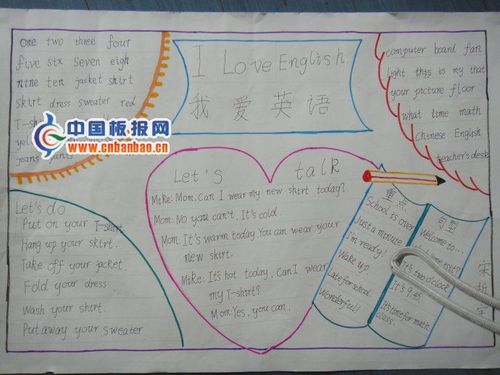 one two three four
five six seven eigh
nine ten jacket skirt
skirt dress sweater red
T-sh
yel
jeans pants
中国板报网
www.cnbanbao.cn
I Love English
我爱英语
computer board fan
light this is my that
your picture floor
what time math
Chinese English
teacher's desk
Let's do
Put on your T-shirt
Hang up your skirt.
Take off your jacket
Fold your dress
Wash your shirt.
Put away your sweater
Let's talk
Mike: Mom, Can I wear my new shirt today?
Mom: No you can't. It's cold.
Mom: It's warm today. You can wear your
new skirt.
Mike: It's hot today. Can I wear
my T-shirt?
Mom: Yes, you can.
重点
School is over
Just a minute
I'm ready!
Wake up
Late for school
Wonderful!
句型
Welcome to...
o'clock
It's 9:45
It's time for math
class.